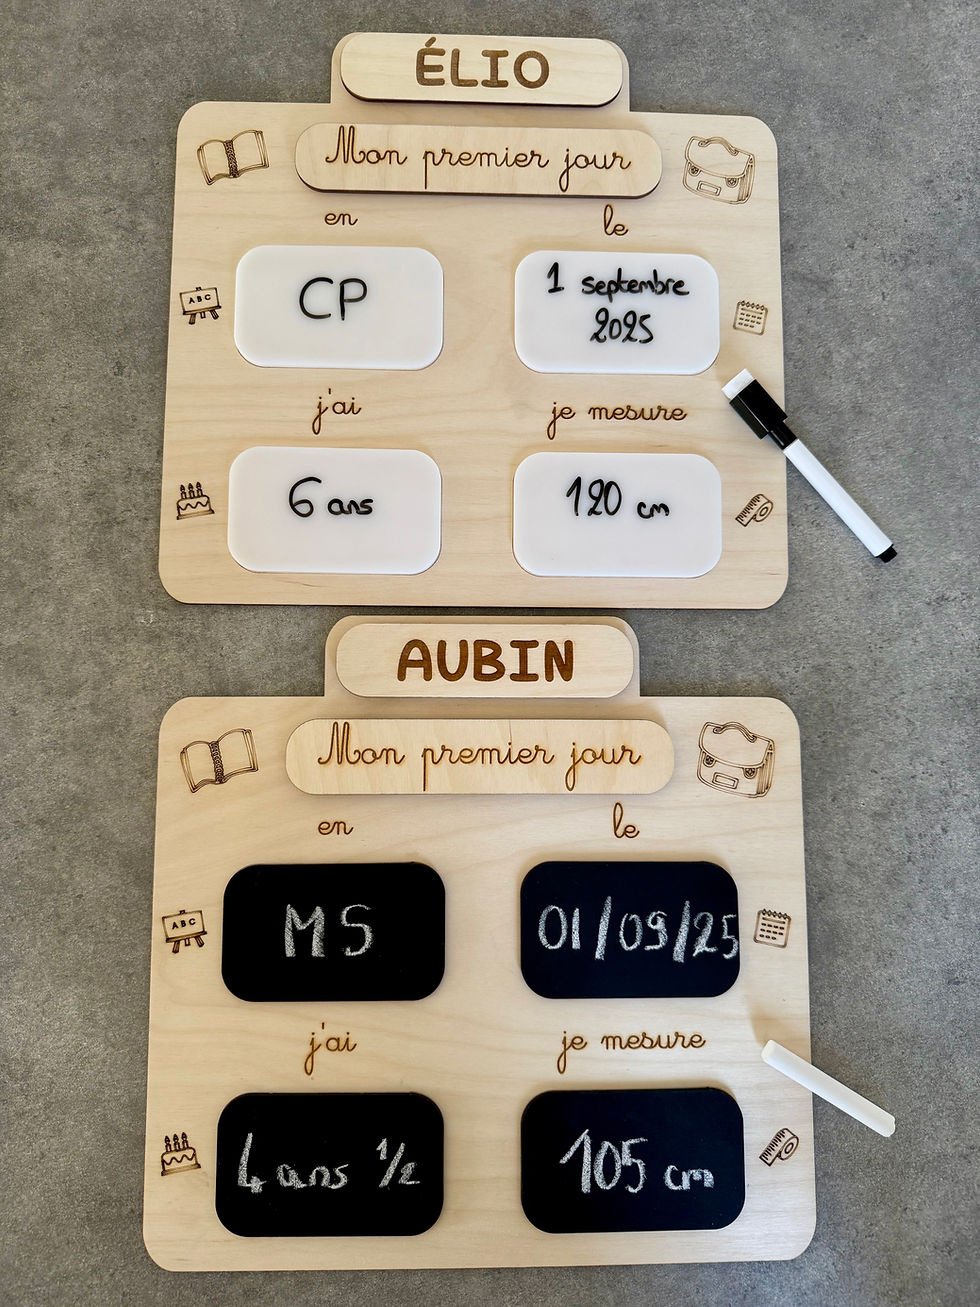 ÉLIO
Mon premier jour
en
le
ABC
CP
1 septembre
2025
j'ai
je mesure
6 ans
120 cm
AUBIN
Mon premier jour
en
le
ABC
MS
01/09/25
j'ai
je mesure
4 ans 1/2
105 cm